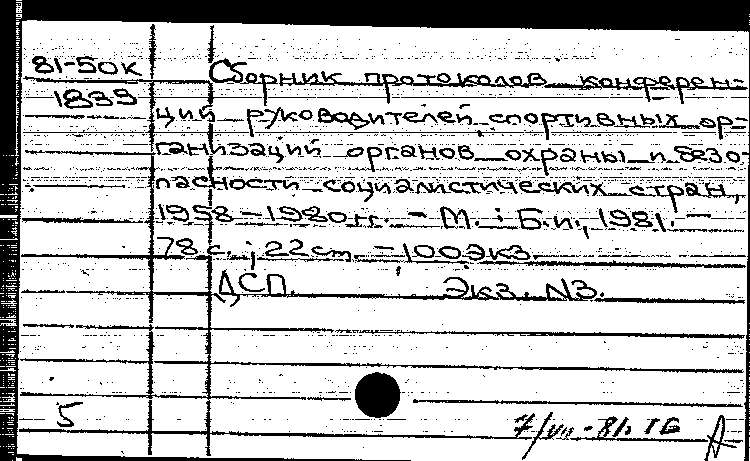 81-50к Сборник протоколов конферен-
1839 ций руководителей спортивных ор-
ганизаций органов охраны и безо-
пасности социалистических стран,
1958-1980 гг. - М.: Б.и., 1981. -
78 с.; 22 см. - 100 экз.
ДСП. Экз. N3.
5
7/VII-81г. ТБ